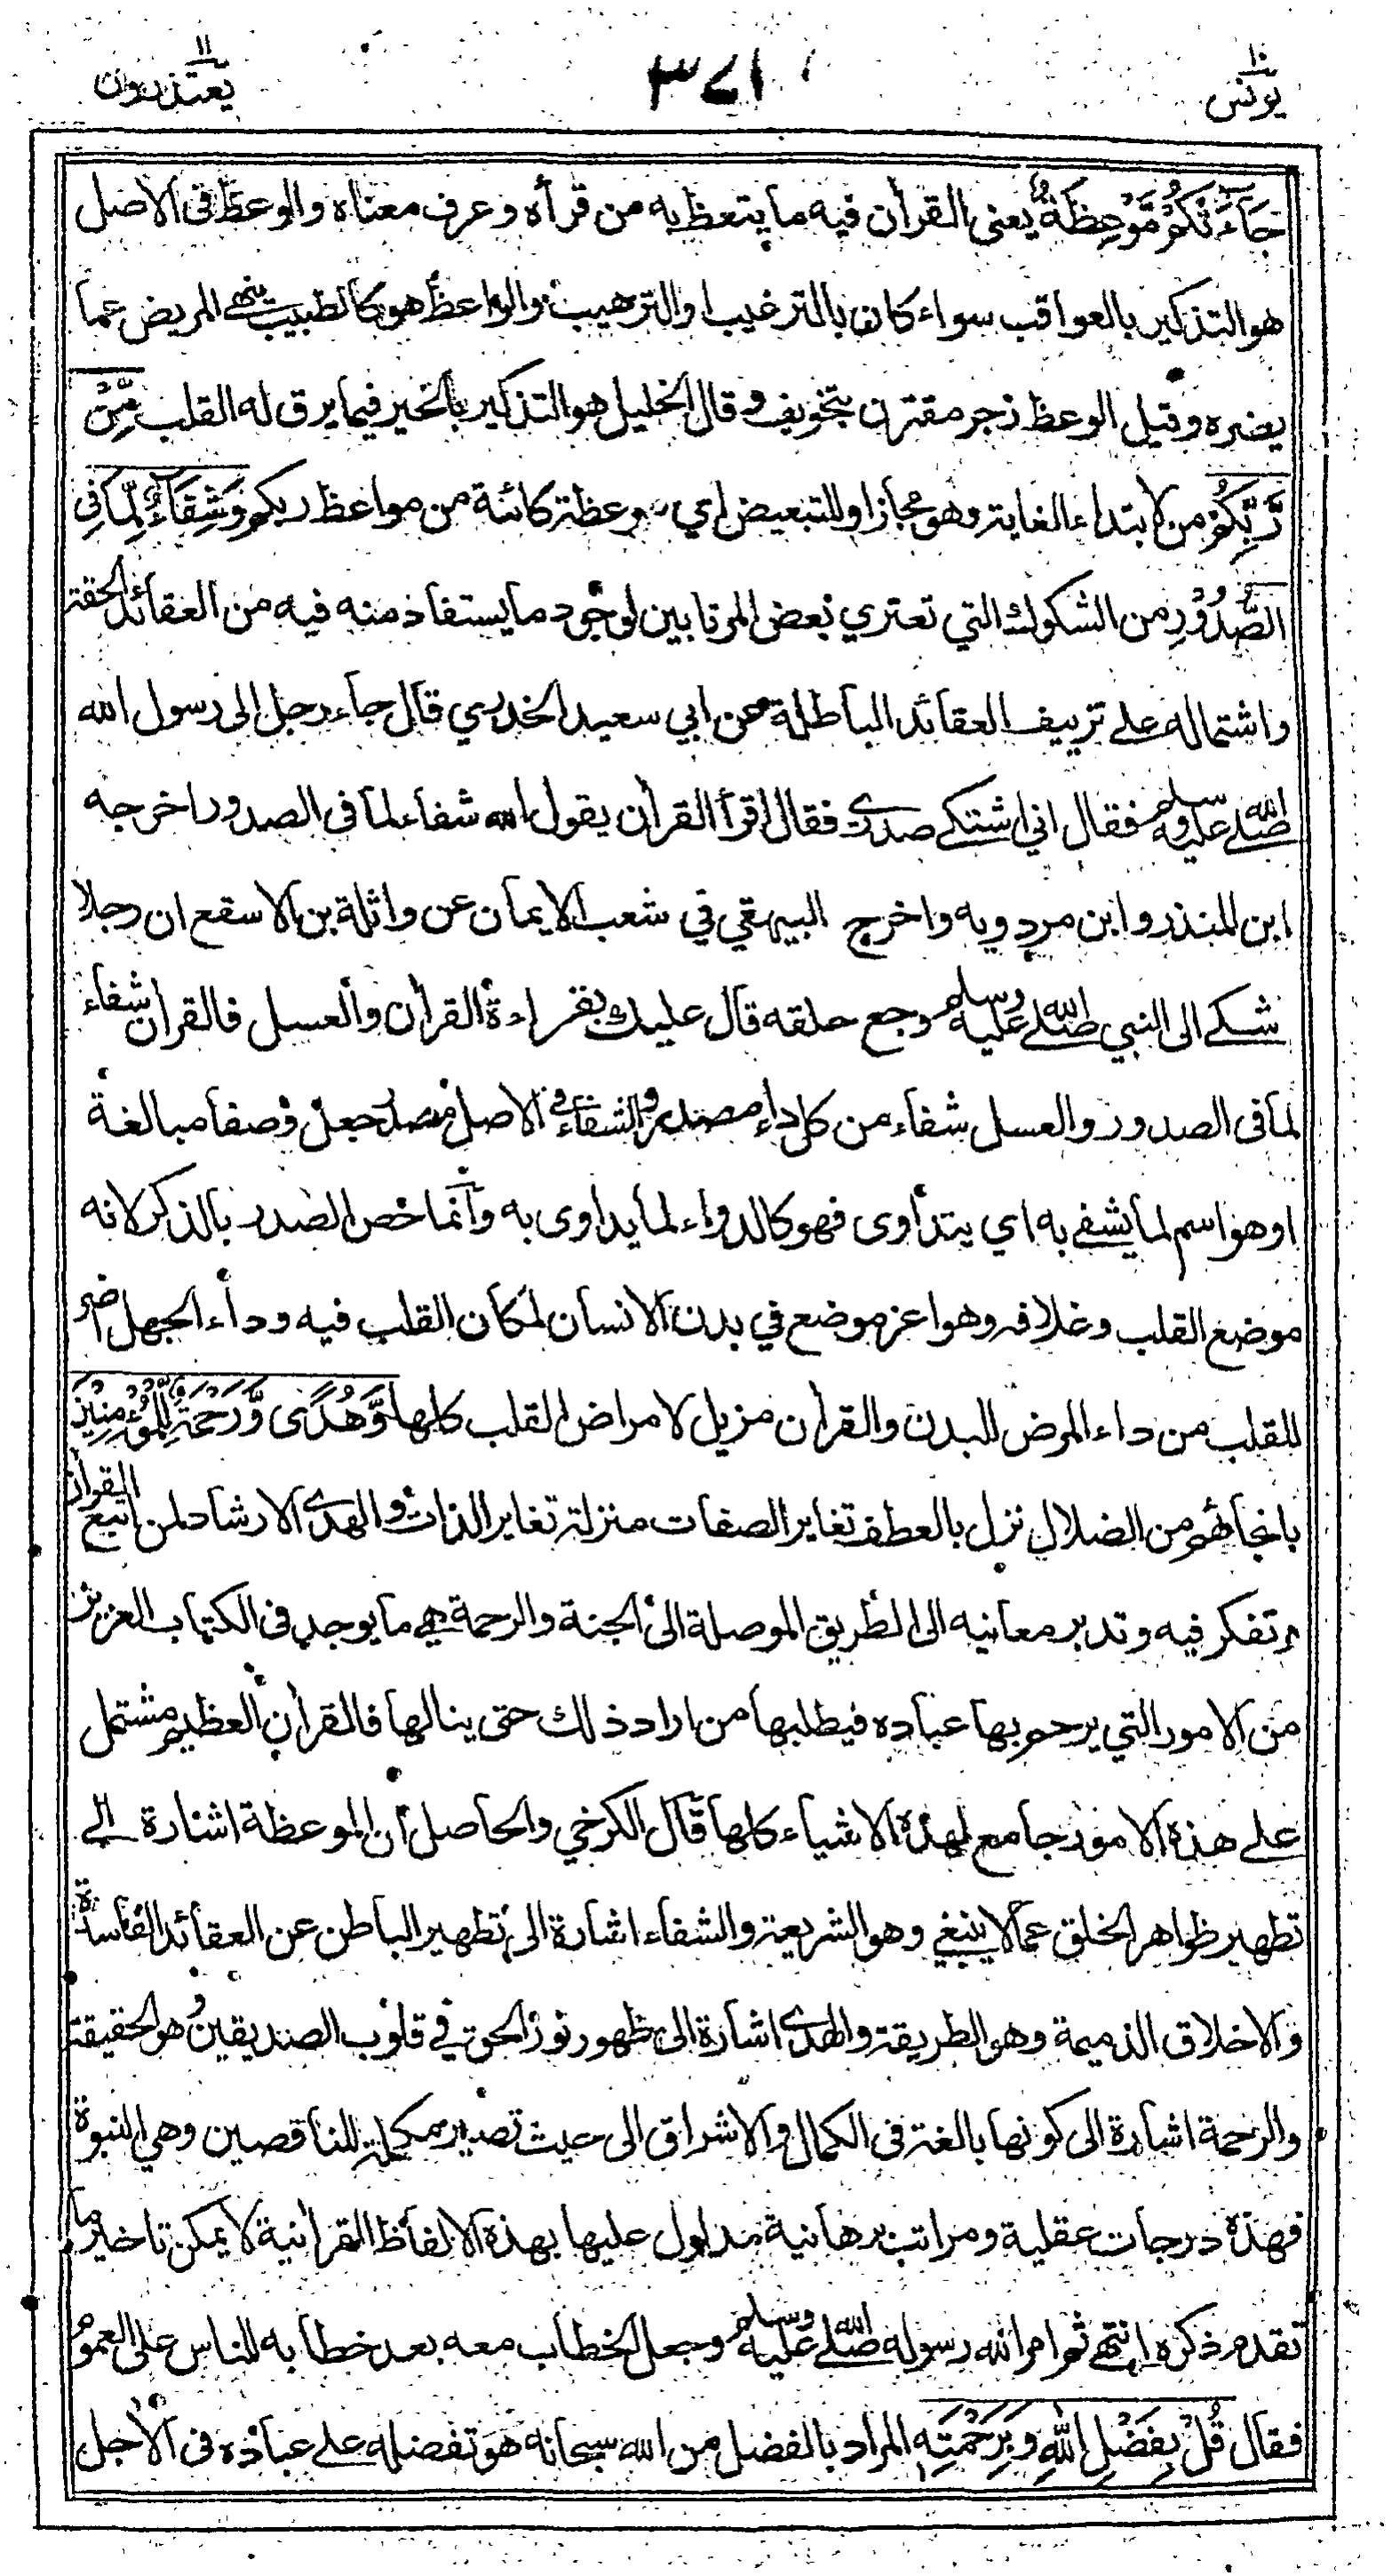 ١٠
يونس
٣٧١
١١
يعتذرون
جَآءَتْكُمْ مَّوْعِظَةٌ يعني القرأن فيه ما يتعظ به من قرأه وعرف معناه والوعظ في الاصل
هو التذكير بالعواقب سواء كان بالترغيب او الترهيب والواعظ هو كالطبيب ينهى المريض عما
يضره وقيل الوعظ زجر مقترن بتخويف وقال الخليل هو التذكير بالخير فيما يرق له القلب مِّنْ
رَّبِّكُمْ من لابتداء الغاية وهو مجاز او للتبعيض اي موعظة كائنة من مواعظ ربكم وَشِفَآءٌ لِّمَا فِي
الصُّدُوْرِ من الشكوك التي تعتري بعض المرتابين لوجود ما يستفاد منه فيه من العقائد الحقة
واشتماله على تزييف العقائد الباطلة عن ابي سعيد الخدري قال جاء رجل الى رسول الله
صلى الله عليه وسلم فقال اني اشتكي صدري فقال اقرأ القرأن يقول الله شفاء لما في الصدور اخرجه
ابن المنذر وابن مردويه واخرج البيهقي في شعب الايمان عن واثلة بن الاسقع ان رجلا
شكى الى النبي صلى الله عليه وسلم وجع حلقه قال عليك بقراءة القرأن والعسل فالقرأن شفاء
لما في الصدور والعسل شفاء من كل داء والشفاء في الاصل مصدر جعل وصفا مبالغة
او هو اسم لما يشفى به اي يتداوى فهو كالدواء لما يداوى به وانما خص الصدر بالذكر لانه
موضع القلب وغلافه وهو اعز موضع في بدن الانسان لمكان القلب فيه وداء الجهل اضر
للقلب من داء المرض للبدن والقرأن مزيل لامراض القلب كلها وَهُدًى وَّرَحْمَةٌ لِّلْمُؤْمِنِيْنَ
بانجائهم من الضلال نزل بالعطف تغاير الصفات منزلة تغاير الذات والهدى الارشاد لمن اتبع القرأن
وتفكر فيه وتدبر معانيه الى الطريق الموصلة الى الجنة والرحمة هي ما يوجد في الكتاب العزيز
من الامور التي يرحم بها عباده فيطلبها من اراد ذلك حتى ينالها فالقرأن العظيم مشتمل
على هذه الامور جامع لهذه الاشياء كلها قال الكرخي والحاصل ان الموعظة اشارة الى
تطهير ظواهر الخلق عما لا ينبغي وهو الشريعة والشفاء اشارة الى تطهير الباطن عن العقائد الفاسدة
والاخلاق الذميمة وهو الطريقة والهدى اشارة الى ظهور نور الحق في قلوب الصديقين وهو الحقيقة
والرحمة اشارة الى كونها بالغة في الكمال والاشراق الى حيث تصير مكملة للناقصين وهي النبوة
فهذه درجات عقلية ومراتب برهانية مدلول عليها بهذه الالفاظ القرأنية لا يمكن تاخير ما
تقدم ذكره انتهى ثم امر الله رسوله صلى الله عليه وسلم وجعل الخطاب معه بعد خطابه للناس على العموم
فقال قُلْ بِفَضْلِ اللهِ وَبِرَحْمَتِهِ المراد بالفضل من الله سبحانه هو تفضله على عباده في الاجل